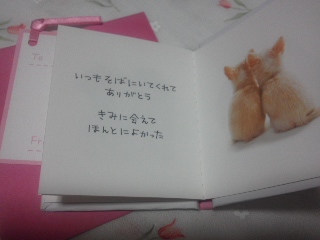 To
いつもそばにいてくれて
ありがとう
きみに会えて
ほんとによかった